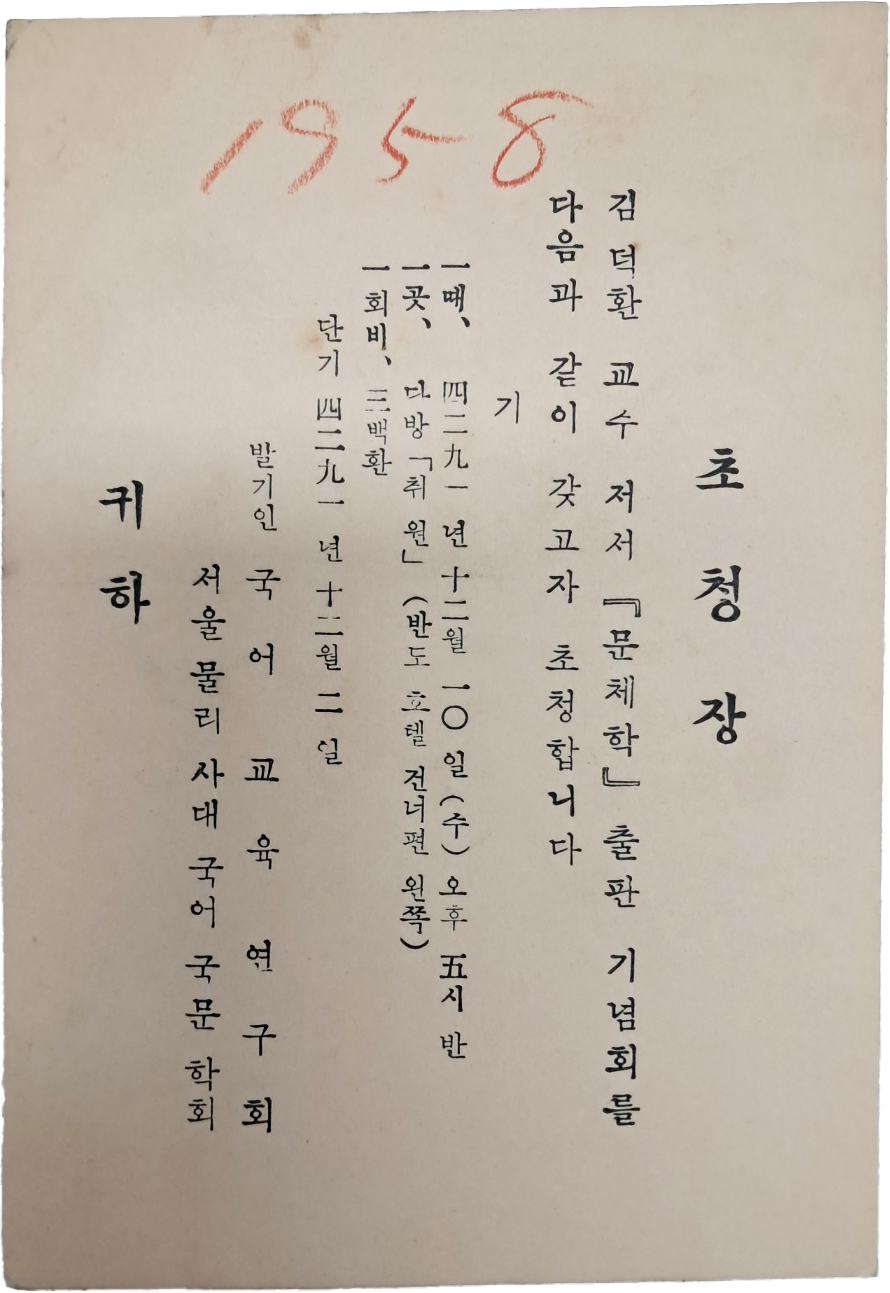 1958
초청장
김덕환 교수 저서 『문체학』 출판 기념회를
다음과 같이 갖고자 초청합니다
기
一 때、 四二九一년 十二월 一〇일 (수) 오후 五시 반
一 곳、 다방 「취원」 (반도 호텔 건너편 왼쪽)
一 회비、 三백환
단기 四二九一년 十二월 二일
발기인 국어 교육 연구회
서울 물리 사대 국어 국문 학회
귀하